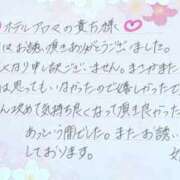 ホテルアロマの貴方様
はお誘い頂きありがとうございました。
くなり申し訳ございません。まさかまた
は思ってもいなかったので嬉しかったで
ん攻めて気持ち良くなって頂き良かった
あっという間でした。またお誘い
しております。